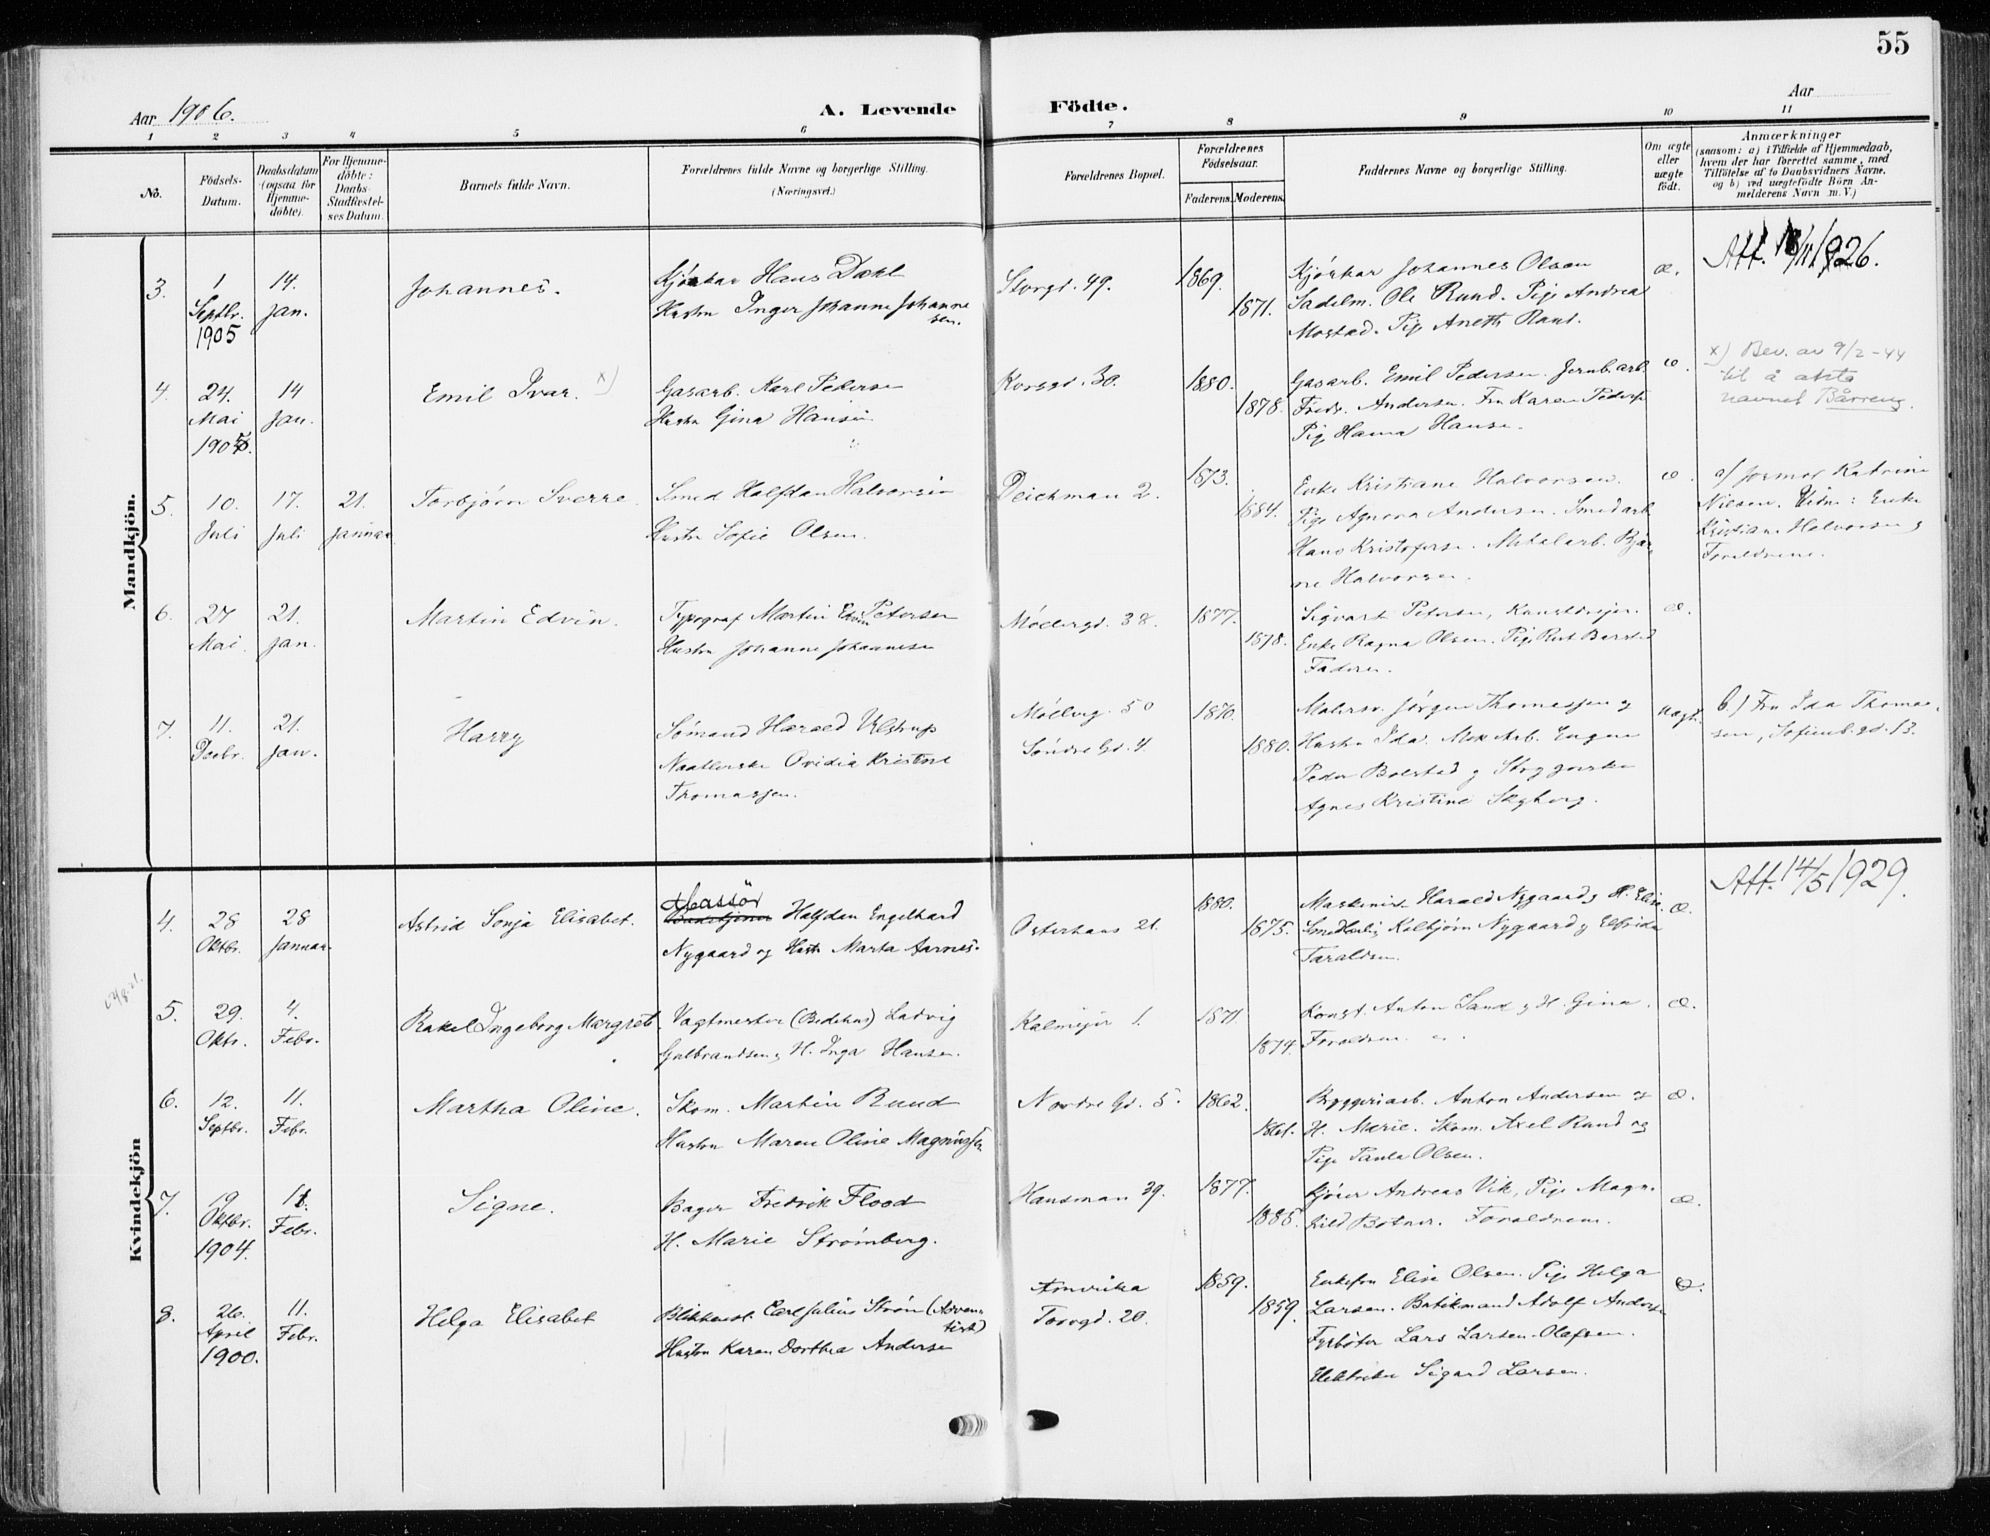 55
Aar 1906.
A. Levende Födte.
Aar
1 2 3 4 5 6 7 8 9 10 11
No.
Födsels-
Datum.
Daabsdatum
(ogsaa for
Hjemme-
döbte).
For Hjemme-
döbte:
Daabs-
Stadfæstel-
ses Datum.
Barnets fulde Navn.
Forældrenes fulde Navne og borgerlige Stilling.
(Næringsvei.)
Forældrenes Bopæl.
Forældrenes
Födselsaar.
Faderens. Moderens.
Faddernes Navne og borgerlige Stilling.
Om ægte
eller
uægte
födt.
Anmærkninger
(saasom: a) i Tilfælde af Hjemmedaab,
hvem der har forrettet samme, med
Tilföielse af to Daabsvidners Navne,
og b) ved uægtefödte Börn An-
melderens Navn m. V.)
Mandkjön.
3.
1
Septbr.
1905
14.
Jan.
Johannes.
Hans Dahl
Hustru Inger Johanne Johanne
sen.
Storgd. 49.
1869.
1871.
Johannes Olsen
Sadelm. Ole Rund. Pige Andrea
Mostad. Pige Anette
æ.
Att. 1926.
4.
24.
Mai
1905.
14
Jan.
Emil Ivar. x)
Gasarb. Karl Pedersen
Hustru Gina Hansen.
Korsgd. 30.
1880.
1878.
Gasarb. Emil Pedersen. Jernb.arb.
Fredr. Andersen. Fru Karen Peders
Pige Hanna Hansen.
æ.
x) Bev. av 9/2-44
til å
navnet Bårreng.
5.
10.
Juli
17.
Juli
21.
Januar
Torbjørn Sverre.
Smed Halfdan Halvorsen
Hustru Sofie Olsen.
Deichman 2.
1873.
1884.
Enke Kristiane Halvorsen.
Pige Andersen. Smedarb.
Hans Kristofersen. Metalarb. Bjar-
ne Halvorsen.
æ.
a) Jormor Katrine
Nielsen. Vidne: Enke
Kristiane Halvorsen &
Forældrene.
6.
27
Mai.
21.
Jan.
Martin Edvin.
Typograf Martin Edvin Petersen
Hustru Johanne Johannesen
Møllergd. 38.
1877.
1878.
Sigvart Petersen, Kunstdreier.
Enke Ragna Olsen. Pige
Faderen.
æ.
7.
11.
Decbr.
21.
Jan.
Harry
Sømand Harald Ulstrup
Ovidia Kristine
Thomassen.
Møllerg. 50
Søndre Gd. 4.
1870.
1880.
Malersv. Jørgen Thomassen og
Hustru Ida. Mek Arb. Eugen
Peder Bolstad og
Agnes Kristine Skyberg.
uægt.
b.) Fru Ida Thomas-
sen, Sofienb.gd. 13.
Kvindekjön
4.
28
Oktbr.
28
Januar
Astrid Sonja Elisabet.
Massör
Halfdan Engelhard
Nygaard og Hustr Marta Aarnes.
Osterhaus 21.
1880.
1875.
Maskinist Harald Nygaard og H. Elise.
Kolbjørn Nygaard og Elfrida
Taraldsen.
æ.
Att. 14/5 1929.
5.
29.
Oktbr.
4.
Febr.
Rakel Ingeborg Margret.
Vagtmester (Bedehus) Ludvig
Gulbrandsen, H. Inga Hansen.
Kalmeyer 1.
1871
1874.
Konst. Anton Sand og H. Gina.
Forældrene.
æ.
6.
12.
Septbr.
11.
Febr.
Martha Oline.
Skom. Martin Ruud
Hustru Maren Oline Magnussen
Nordre Gd. 5.
1862.
1861.
Bryggeriarb. Anton Andersen og
H. Marie. Skom. Axel Ruud og
Pige Paula Olsen.
æ.
7.
19
Oktbr.
1904.
11.
Febr.
Signe.
Bager Fredrik Flood
H. Marie Strømberg.
Hausman 39.
1877.
1885.
Kjører Andreas Vik, Pige Magn-
hild Botner. Forældrene.
æ.
8.
26.
April
1900.
11.
Febr.
Helga Elisabet
Carl Julius Strøm (Adven-
tist)
Hustru Karen Dorthea Andersen
Amerika
Torvgd. 20.
1859.
1859.
Elise Olsen. Pige Helga
Larsen. Butikmand Adolf Andersen
Fyrbøter Lars Larsen-Olafsen.
Sigurd Larsen.
æ.